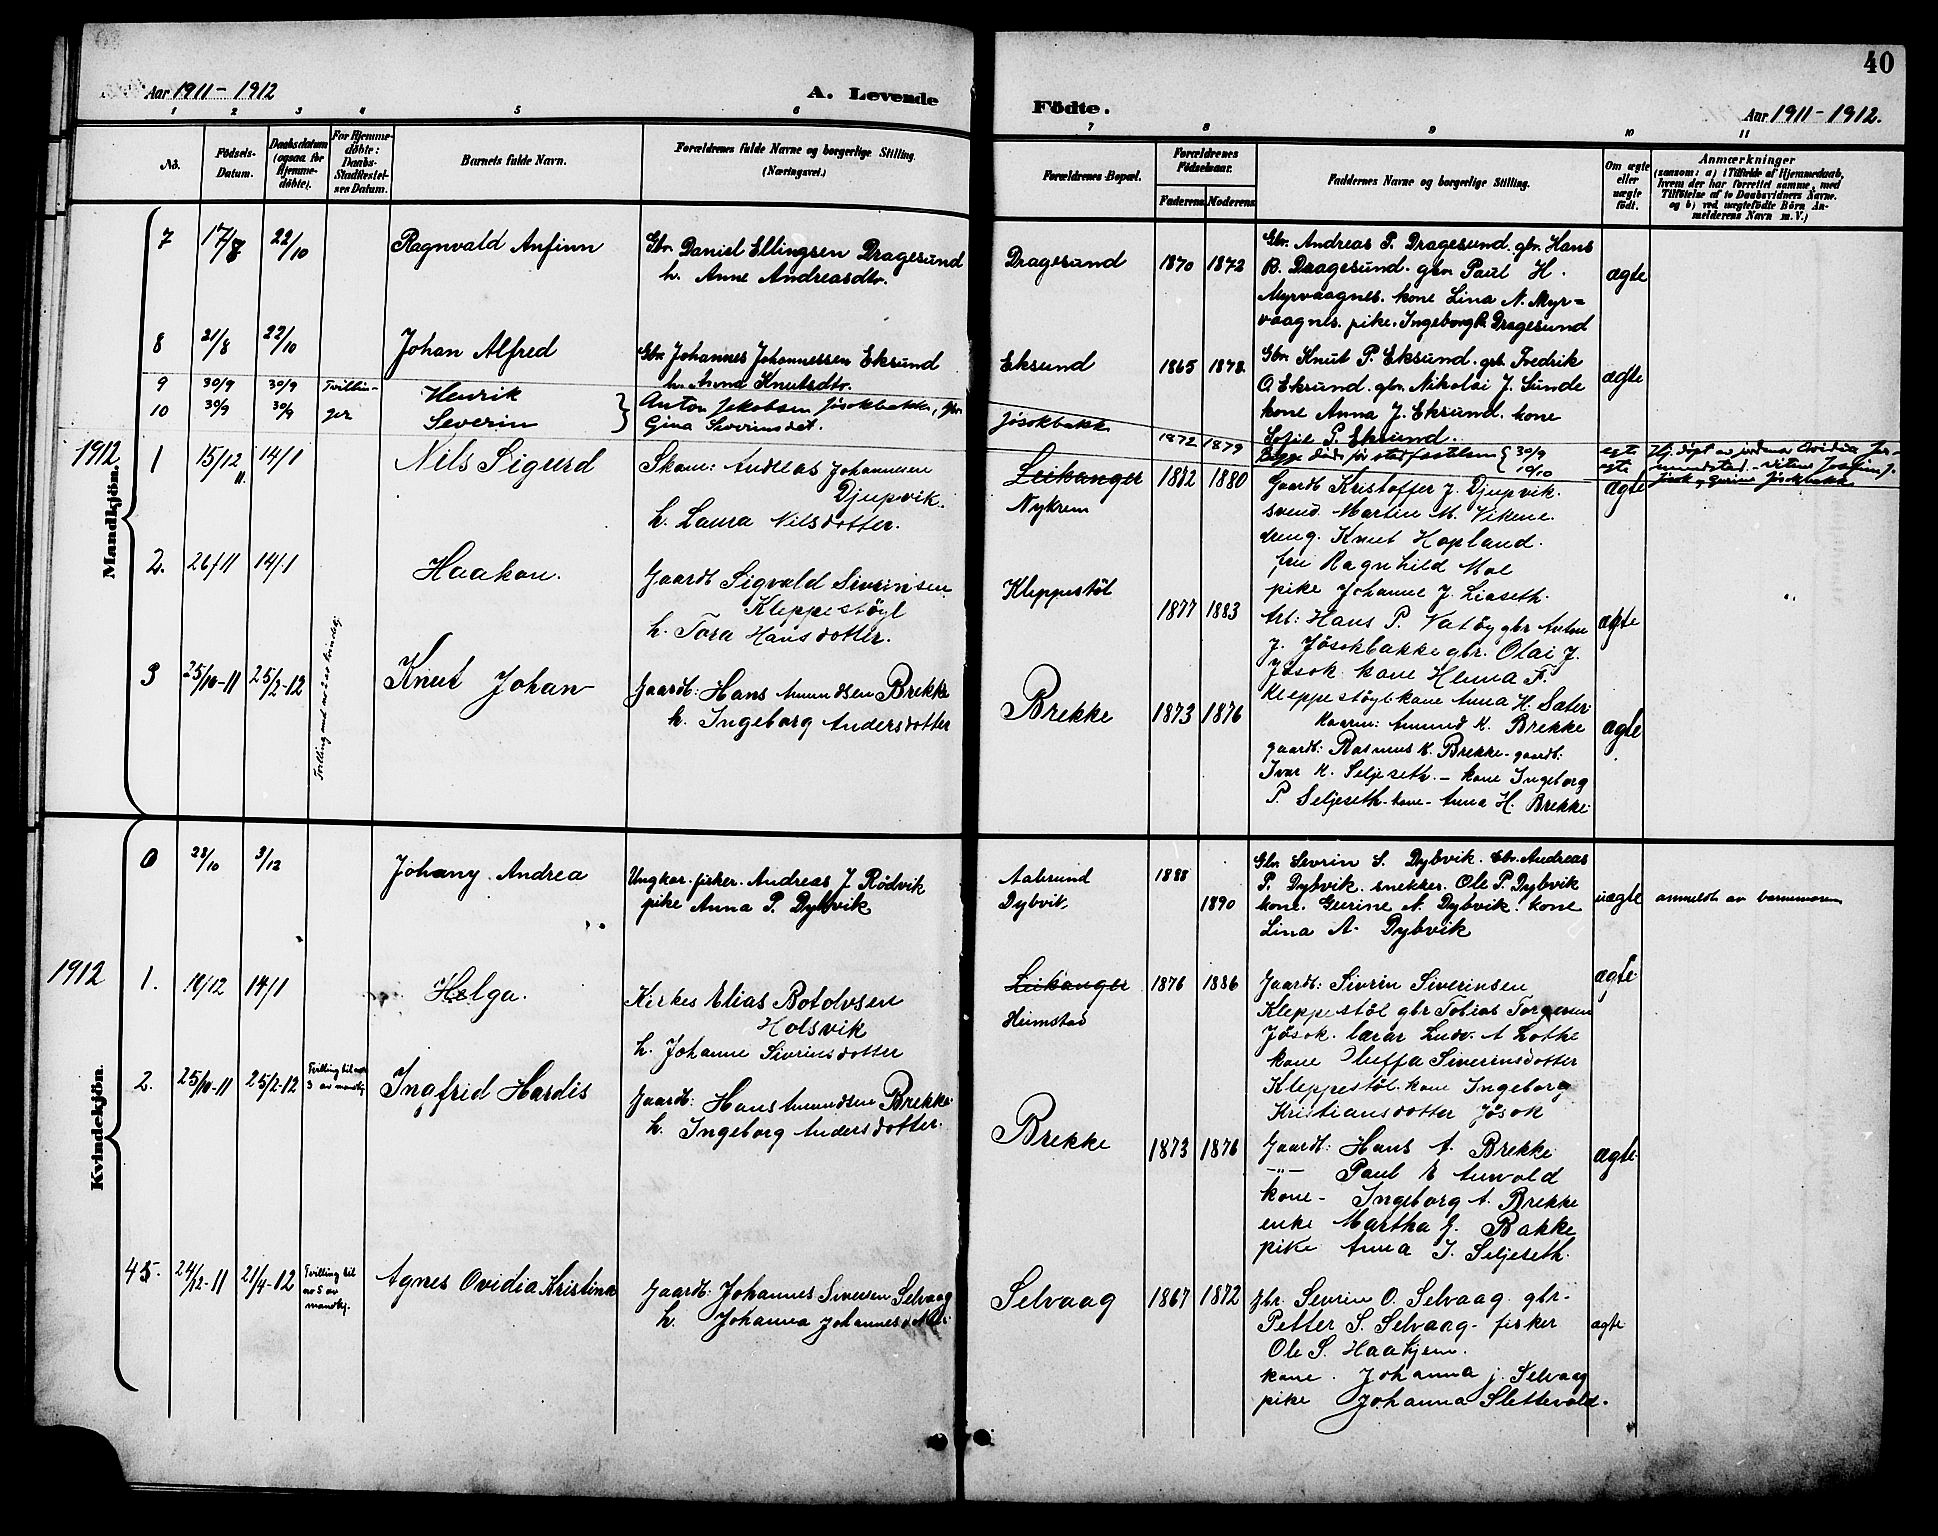 40
Aar 1911 - 1912
A. Levende
Födte.
Aar 1911 - 1912.
1 2 3 4 5 6 7 8 9 10 11
No.
Födsels-
Datum.
Daabsdatum
(ogsaa for
Hjemme-
döbte).
For Hjemme-
döbte:
Daabs-
Stadfæstel-
ses Datum.
Barnets fulde Navn.
Forældrenes fulde Navne og borgerlige Stilling.
(Næringsvei.)
Forældrenes Bopæl.
Forældrenes
Födselsaar.
Faderens Moderens
Faddernes Navne og borgerlige Stilling.
Om ægte
eller
uægte
födt.
Anmærkninger
(saasom: a) i Tilfælde af Hjemmedaab,
hvem der har forrettet samme, med
Tilföielse af to Daabsvidners Navne,
og b) ved uægtefödte Börn An-
melderens Navn m. V.)
Mandkjön.
7 17/8 22/10 Ragnvald Anfinn
Gbr. Daniel Ellingsen Dragesund
h. Anne Andreasdtr.
Dragesund 1870 1872
Gbr. Andreas P. Dragesund. gbr. Hans
R. Dragesund. gbr. Paul H.
Myrvaagnes. kone Lina N. Myr=
vaagnes. pike. Ingeborg R. Dragesund
ægte
8 21/8 22/10 Johan Alfred
Gbr. Johannes Johannessen Eksund
h. Anna Knutsdtr.
Eksund 1865 1878
Gbr. Knut P. Eksund. gbr. Fredrik
O. Eksund. gbr. Nikolai J. Sunde
kone Anna J. Eksund. kone
Sofie P. Eksund.
ægte
9 30/9 30/9 Tvillin- Henrik
10 30/9 30/9 ger Severin
Anton Jakobsen Jøsokbakke, gbr
Gina Severinsdtr.
Jøsokbakk 1872 1879
Begge døde før stadfæstelsen { 30/9
10/10
egte
egte
1912
1 15/12 11. 14/1 Nils Sigurd
Skom: Andreas Johannesen
Djupvik.
h. Laura Nilsdotter.
Leikanger
Nykrem
1882 1880
Gaardb Kristoffer J. Djupvik.
svend. Martin M. Vikene.
dreng. Knut Hopland.
fru Ragnhild Moe
pike Johanne J. Liaseth.
ægte
2. 26/11 14/1 Haakon.
Gaardb Sigvald Sivrinsen
Kleppestøyl
h. Tora Hansdotter.
Kleppestøl 1877 1883
Arb: Hans P. Vatøy gbr Anton
J. Jøsokbakke gbr. Olai J.
Jøsok. kone Henna F.
Kleppestøyl kone Anna H. Sæter
ægte
3 25/10-11 25/2-12 Knut Johan
Gaardb: Hans Amundsen Brekke
h. Ingeborg Andersdotter
Brekke 1873 1876
Kaarm: Amund K. Brekke
gaardb: Rasmus K. Brekke - gaardb:
Ivar K. Seljeseth. - kone Ingeborg
P. Seljeseth. kone - Anna H. Brekke.
ægte
Kvindekjön.
0 28/10 3/12 Johany Andrea
Ungkar. fisker. Andreas J Rödvik
pike Anna P. Dybvik
Aalesund 1888
Dybvik 1890
Gbr. Sevrin S. Dybvik. Gbr. Andreas
P. Dybvik. snekker. Ole P. Dybvik
kone. Gurine A. Dybvik. kone
Lina A. Dybvik
uægte anmeldt av barnemoren
1912
1. 10/12 14/1 Helga.
Kirkes Elias Botolvsen
Holsvik
h. Johanne Sivrinsdotter
Leikanger
Heimstad
1876 1886
Gaardb: Sivrin Siverinsen
Kleppestøl gbr Tobias Torgersen
Jøsok. lærar Ludv. A Lothe
kone Oluffa Siverinsdotter
Kleppestøl. kone Ingeborg
Kristiansdotter Jøsok
ægte
2. 25/10-11 25/2-12 Tvilling til no
3 av mandkj. Ingfrid Hardis
Gaardb: Hans Amundsen Brekke
h. Ingeborg Andersdotter.
Brekke 1873 1876
Gaardb: Hans A. Brekke
-"- Paul E Aurvold
kone - Ingeborg A. Brekke
enke Martha E. Bakke
pike Anna I. Seljeseth.
ægte
45. 24/12-11 21/4-12 Tvilling til
no 5 av
mandkj. Agnes Ovidia Kristina
Gaardb: Johannes Simesen Selvaag
h. Johanna Johannesdotter
Selvaag 1867 1872
Gbr. Sevrin O. Selvaag. gbr-
Petter S. Selvaag. fisker
Ole S. Haakjem.
kone. Johanna J. Selvaag
pike Johanna Slettevold.
ægte